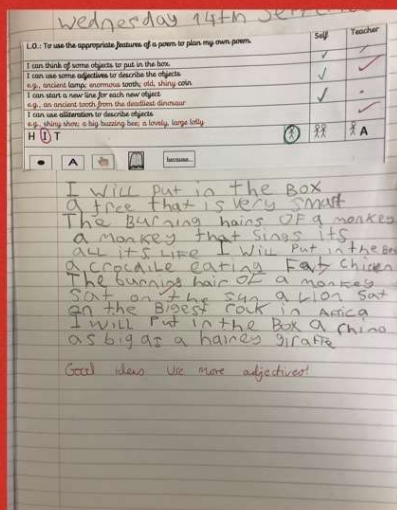 Wednesday 14th
Self Teacher
L.O.: To use the appropriate features of a poem to plan my own poem.
I can think of some objects to put in the box.
I can use some adjectives to describe the objects
e.g., ancient lamp; enormous tooth; old, shiny coin
I can start a new line for each new object
e.g., an ancient tooth from the deadliest dinosaur
I can use alliteration to describe objects
e.g., shiny shoe; a big buzzing bee; a lovely, large lolly
H I T A
A because...
I will put in the Box
a tree that is very smart
The Burning hairs OF a monkey
a monkey that sings its
aLL its Life I Will Put in the Box
a crocdile eating Fat chicken
The burning hair OF a monkey
Sat on the sun a Lion Sat
on the Bigest rock in Africa
I WILL Put in the Box a rhino
as big as a hairey giraffe
Good ideas Use more adjectives!